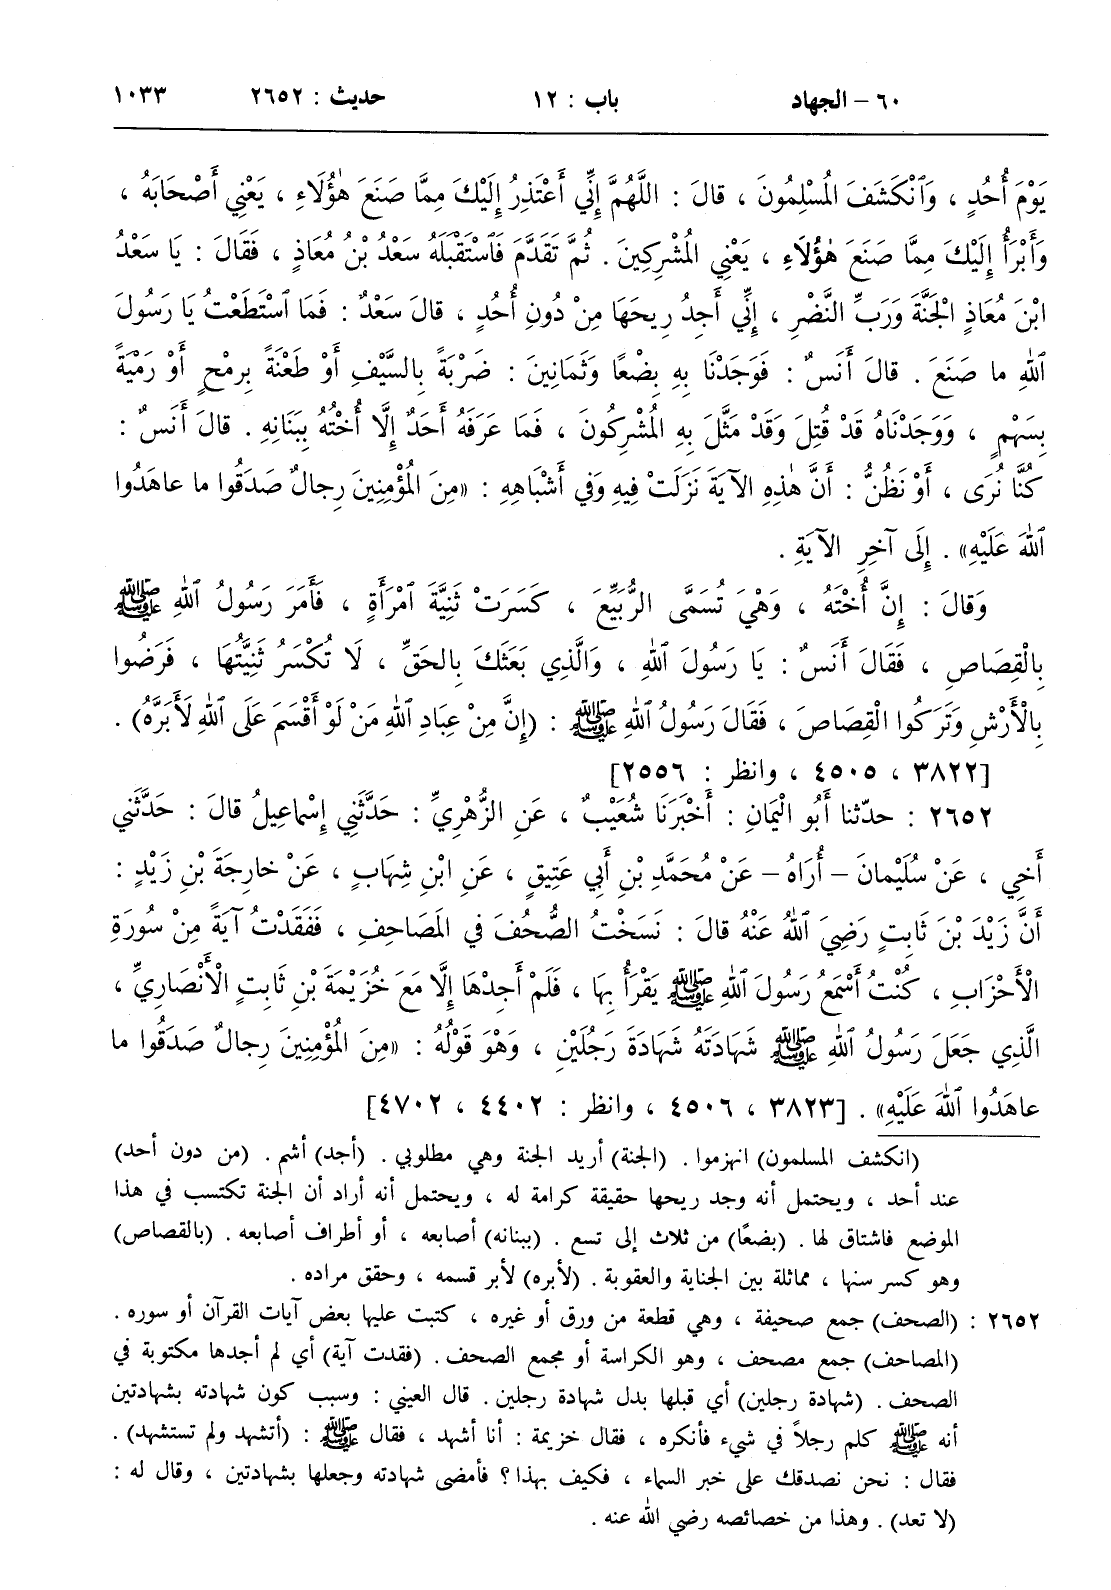 ٦٠ – الجهاد باب : ١٢ حديث : ٢٦٥٢ ١٠٣٣
يَوْمَ أُحُدٍ ، وَٱنْكَشَفَ الْمُسْلِمُونَ ، قالَ : اللَّهُمَّ إِنِّي أَعْتَذِرُ إِلَيْكَ مِمَّا صَنَعَ هٰؤُلَاءِ ، يَعْنِي أَصْحَابَهُ ،
وَأَبْرَأُ إِلَيْكَ مِمَّا صَنَعَ هٰؤُلَاءِ ، يَعْنِي المُشْرِكِينَ . ثُمَّ تَقَدَّمَ فَٱسْتَقْبَلَهُ سَعْدُ بْنُ مُعَاذٍ ، فَقَالَ : يَا سَعْدُ
ابْنَ مُعَاذٍ الْجَنَّةَ وَرَبِّ النَّضْرِ ، إِنِّي أَجِدُ رِيحَهَا مِنْ دُونِ أُحُدٍ ، قالَ سَعْدٌ : فَمَا ٱسْتَطَعْتُ يَا رَسُولَ
ٱللهِ ما صَنَعَ . قالَ أَنَسٌ : فَوَجَدْنَا بِهِ بِضْعًا وَثَمَانِينَ : ضَرْبَةً بِالسَّيْفِ أَوْ طَعْنَةً بِرمْحٍ أَوْ رَمْيَةً
بِسَهْمٍ ، وَوَجَدْنَاهُ قَدْ قُتِلَ وَقَدْ مَثَّلَ بِهِ المُشْرِكُونَ ، فَمَا عَرَفَهُ أَحَدٌ إِلَّا أُخْتُهُ بِبَنَانِهِ . قالَ أَنَسٌ :
كُنَّا نُرَى ، أَوْ نَظُنُّ : أَنَّ هٰذِهِ الآيَةَ نَزَلَتْ فِيهِ وَفي أَشْبَاهِهِ : «مِنَ المُؤْمِنِينَ رِجالٌ صَدَقُوا ما عاهَدُوا
ٱللهَ عَلَيْهِ» . إِلَى آخِرِ الآيَةِ .
وَقالَ : إِنَّ أُخْتَهُ ، وَهْيَ تُسَمَّى الرُّبَيِّعَ ، كَسَرَتْ ثَنِيَّةَ ٱمْرَأَةٍ ، فَأَمَرَ رَسُولُ ٱللهِ ﷺ
بِالْقِصَاصِ ، فَقَالَ أَنَسٌ : يَا رَسُولَ ٱللهِ ، وَالَّذِي بَعَثَكَ بِالحَقِّ ، لَا تُكْسَرُ ثَنِيَّتُهَا ، فَرَضُوا
بِالْأَرْشِ وَتَرَكُوا الْقِصَاصَ ، فَقَالَ رَسُولُ ٱللهِ ﷺ : (إِنَّ مِنْ عِبَادِ ٱللهِ مَنْ لَوْ أَقْسَمَ عَلَى ٱللهِ لَأَبَرَّهُ) .
[٣٨٢٢ ، ٤٥٠٥ ، وانظر : ٢٥٥٦]
٢٦٥٢ : حدّثنا أَبُو الْيَمَانِ : أَخْبَرَنَا شُعَيْبٌ ، عَنِ الزُّهْرِيِّ : حَدَّثَنِي إِسْماعِيلُ قالَ : حَدَّثَنِي
أَخِي ، عَنْ سُلَيْمانَ – أُرَاهُ – عَنْ مُحَمَّدِ بْنِ أَبِي عَتِيقٍ ، عَنِ ابْنِ شِهَابٍ ، عَنْ خارِجَةَ بْنِ زَيْدٍ :
أَنَّ زَيْدَ بْنَ ثَابِتٍ رَضِيَ ٱللهُ عَنْهُ قالَ : نَسَخْتُ الصُّحُفَ في المَصَاحِفِ ، فَفَقَدْتُ آيَةً مِنْ سُورَةِ
الْأَحْزَابِ ، كُنْتُ أَسْمَعُ رَسُولَ ٱللهِ ﷺ يَقْرَأُ بِهَا ، فَلَمْ أَجِدْهَا إِلَّا مَعَ خُزَيْمَةَ بْنِ ثَابِتٍ الْأَنْصَارِيِّ ،
الَّذِي جَعَلَ رَسُولُ ٱللهِ ﷺ شَهَادَتَهُ شَهَادَةَ رَجُلَيْنِ ، وَهْوَ قَوْلُهُ : «مِنَ المُؤْمِنِينَ رِجالٌ صَدَقُوا ما
عاهَدُوا ٱللهَ عَلَيْهِ» . [٣٨٢٣ ، ٤٥٠٦ ، وانظر : ٤٤٠٢ ، ٤٧٠٢]
(انكشف المسلمون) انهزموا . (الجنة) أريد الجنة وهي مطلوبي . (أجد) أشم . (من دون أحد)
عند أحد ، ويحتمل أنه وجد ريحها حقيقة كرامة له ، ويحتمل أنه أراد أن الجنة تكتسب في هذا
الموضع فاشتاق لها . (بضعًا) من ثلاث إلى تسع . (ببنانه) أصابعه ، أو أطراف أصابعه . (بالقصاص)
وهو كسر سنها ، مماثلة بين الجناية والعقوبة . (لأبره) لأبر قسمه ، وحقق مراده .
٢٦٥٢ : (الصحف) جمع صحيفة ، وهي قطعة من ورق أو غيره ، كتبت عليها بعض آيات القرآن أو سوره .
(المصاحف) جمع مصحف ، وهو الكراسة أو مجمع الصحف . (فقدت آية) أي لم أجدها مكتوبة في
الصحف . (شهادة رجلين) أي قبلها بدل شهادة رجلين . قال العيني : وسبب كون شهادته بشهادتين
أنه ﷺ كلم رجلاً في شيء فأنكره ، فقال خزيمة : أنا أشهد ، فقال ﷺ : (أتشهد ولم تستشهد) .
فقال : نحن نصدقك على خبر السماء ، فكيف بهذا ؟ فأمضى شهادته وجعلها بشهادتين ، وقال له :
(لا تعد) . وهذا من خصائصه رضي الله عنه .